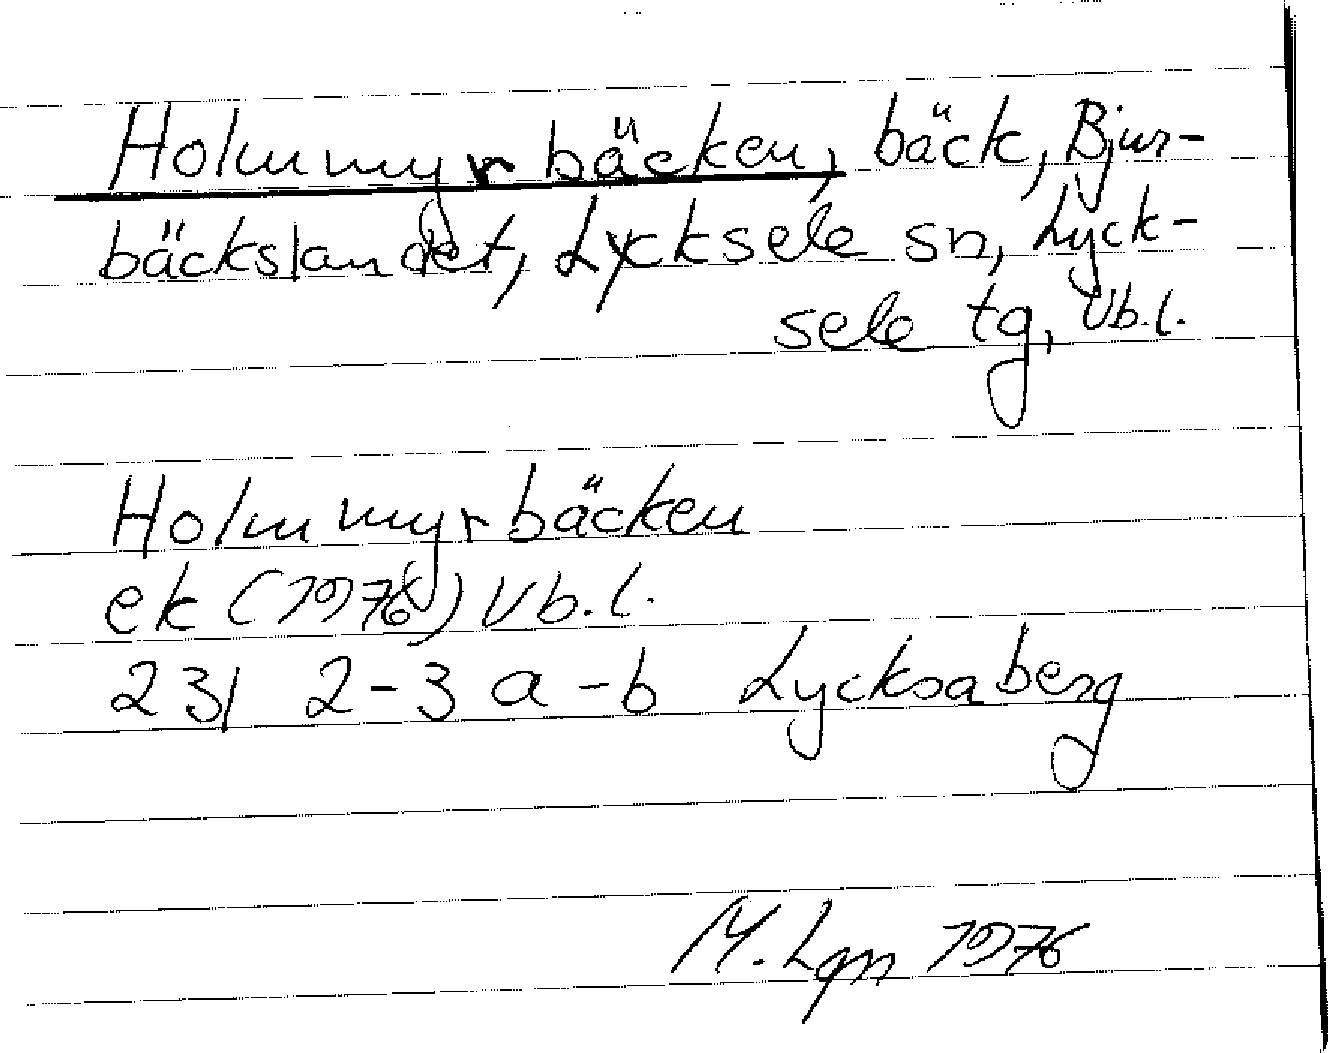 Holmmyrbäcken, bäck, Bjur-
bäckslandet, Lycksele sn, Lyck-
sele tg, Vb.l.
Holmmyrbäcken
ek (1976) Vb.l.
23I 2-3 a-b Lycksaberg
M. Lgn 1976